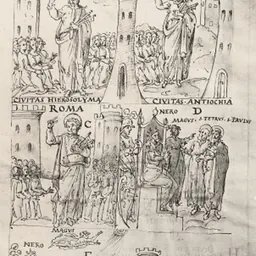 CIVITAS HIEROSOLYMA
CIVITAS ANTIOCHIA
ROMA
C
NERO
D
MAGVS. S. PETRVS. S. PAVLVS
MAGVS
NERO